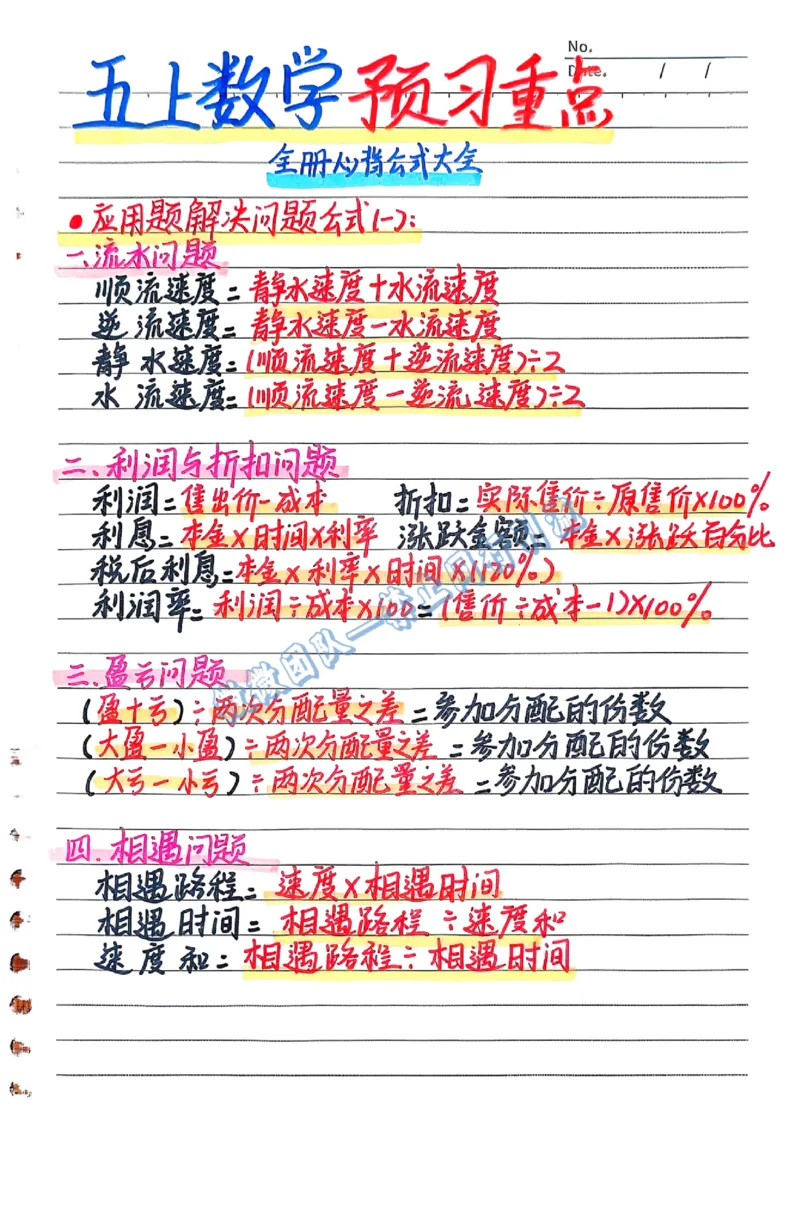 No.
Date. / /
五上数学预习重点
全册必背公式大全
• 应用题解决问题公式(一):
一、流水问题
顺流速度=静水速度+水流速度
逆流速度=静水速度-水流速度
静水速度=(顺流速度+逆流速度)÷2
水流速度=(顺流速度-逆流速度)÷2
二、利润与折扣问题
利润=售出价-成本 折扣=实际售价÷原售价×100%
利息=本金×时间×利率 涨跌金额=本金×涨跌百分比
税后利息=本金×利率×时间×(120%)
利润率=利润÷成本×100=(售价÷成本-1)×100%
三、盈亏问题
(盈+亏)÷两次分配量之差=参加分配的份数
(大盈-小盈)÷两次分配量之差=参加分配的份数
(大亏-小亏)÷两次分配量之差=参加分配的份数
四.相遇问题
相遇路程=速度×相遇时间
相遇时间=相遇路程÷速度和
速度和=相遇路程÷相遇时间